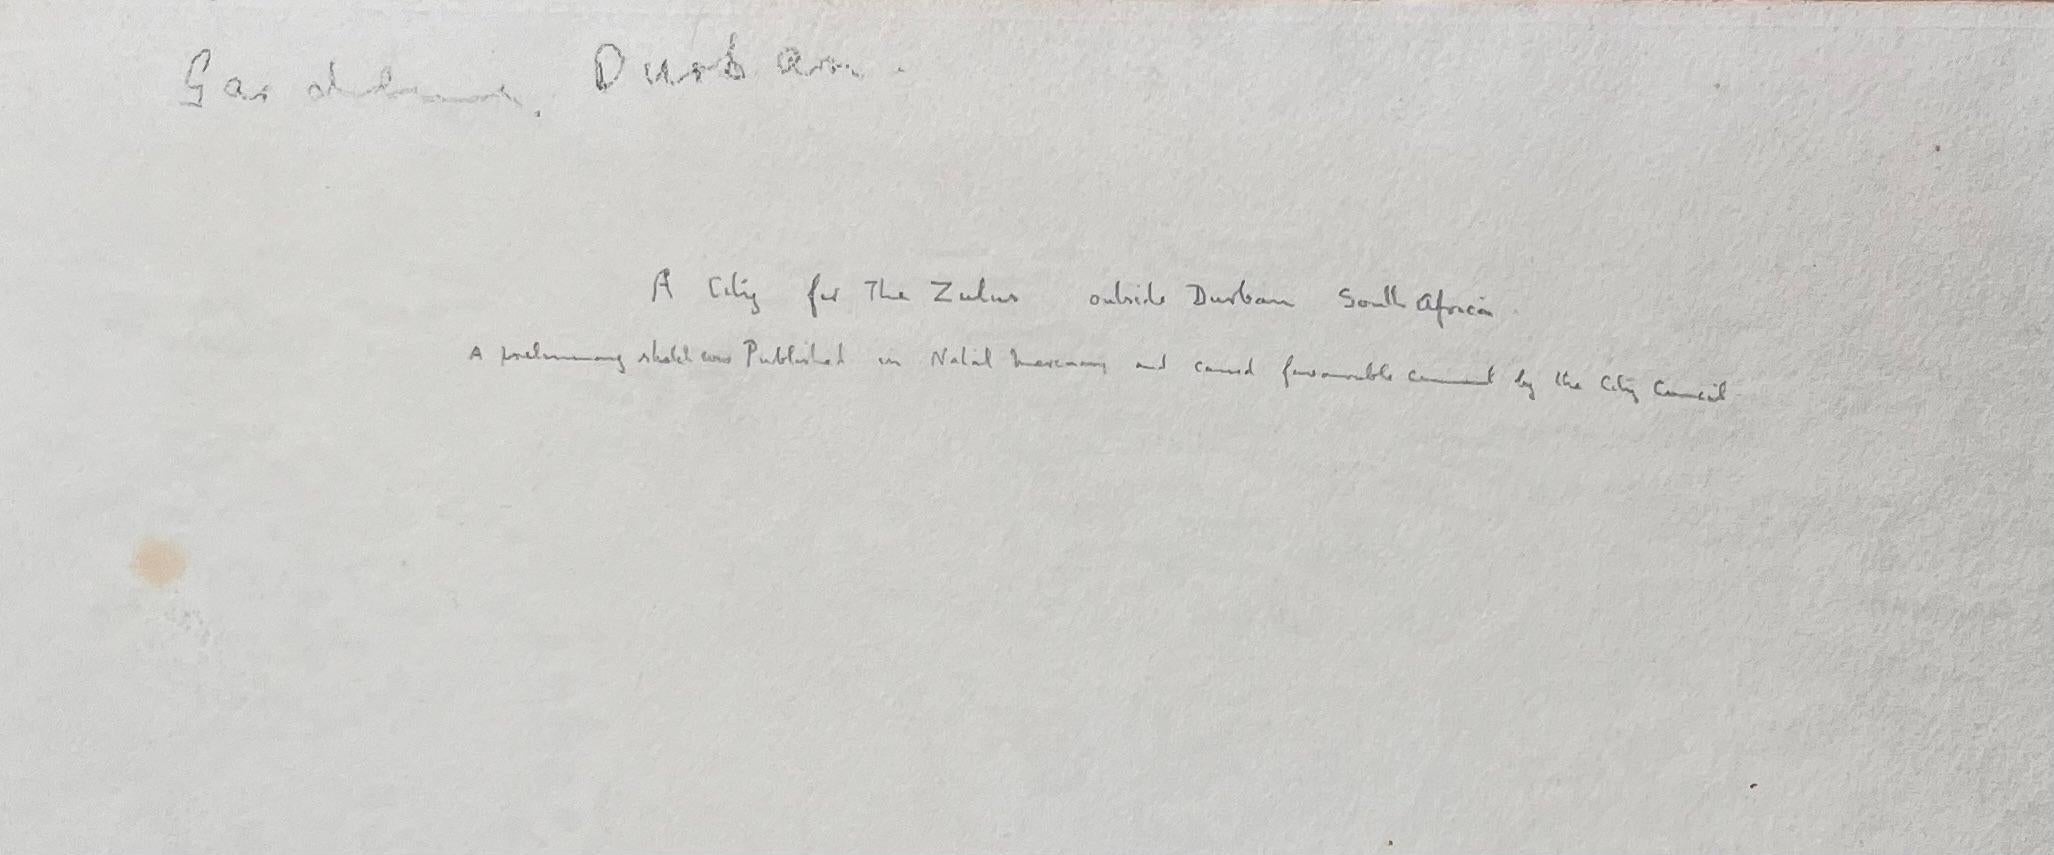 Durban.
A City for The Zulus outside Durban South Africa.
A preliminary sketch was Published in Natal Mercury and caused favourable comment by the City Council